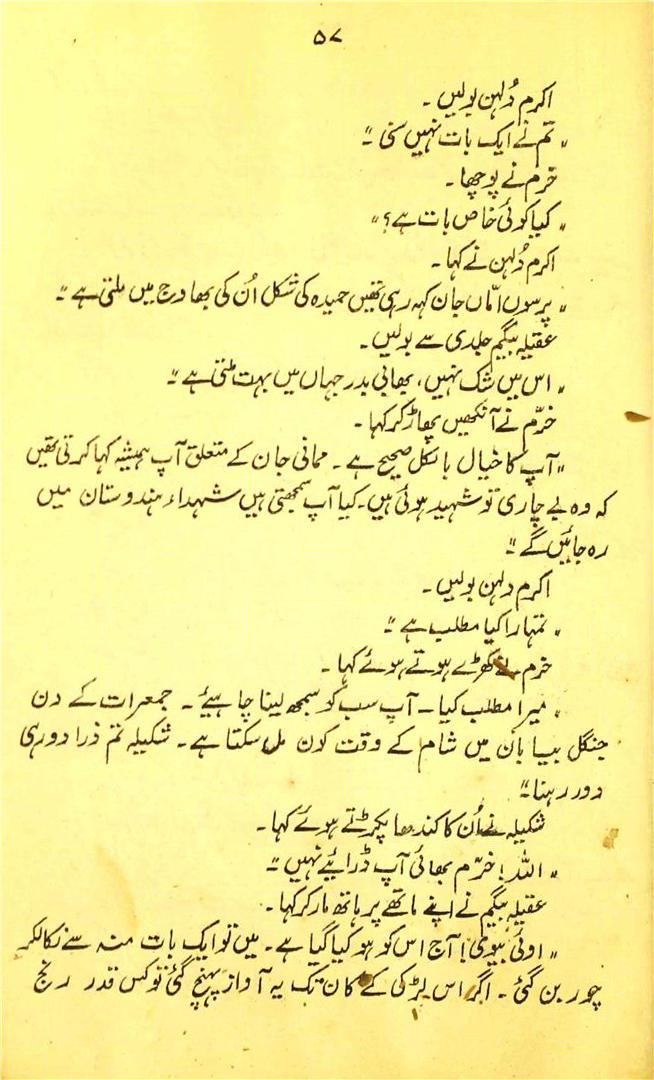 ۵۷
اکرم دُلہن بولیں۔
"تم نے ایک بات نہیں سنی"۔
خرم نے پوچھا۔
"کیا کوئی خاص بات ہے؟"
اکرم دُلہن نے کہا۔
"پرسوں امّاں جان کہہ رہی تھیں حمیدہ کی شکل اُن کی بھاوج میں ملتی ہے"۔
عقیلہ بیگم جلدی سے بولیں۔
"اس میں شک نہیں، بھابی بدر جہاں میں بہت ملتی ہے"۔
خرّم نے آنکھیں پھاڑ کر کہا۔
"آپ کا خیال بالکل صحیح ہے۔ ممانی جان کے متعلق آپ ہمیشہ کہا کرتی تھیں
کہ وہ بے چاری تو شہید ہوئی ہیں۔ کیا آپ سمجھتی ہیں شہداء ہندوستان میں
رہ جائیں گے"۔
اکرم دلہن بولیں۔
"تمہارا کیا مطلب ہے"۔
خرم نے کھڑے ہوتے ہوئے کہا۔
"میرا مطلب کیا۔ آپ سب کو سمجھ لینا چاہیئے۔ جمعرات کے دن
جنگل بیابان میں شام کے وقت کون مل سکتا ہے۔ شکیلہ تم ذرا دور ہی
دور رہنا"۔
شکیلہ نے اُن کا کندھا پکڑتے ہوئے کہا۔
"اللہ! خرّم بھائی آپ ڈرائیے نہیں"۔
عقیلہ بیگم نے اپنے ماتھے پر ہاتھ مار کر کہا۔
"اوئی بیوی! آج اس کو ہو کیا گیا ہے۔ میں تو ایک بات منہ سے نکالکر
چور بن گئی۔ اگر اس لڑکی کے کان تک یہ آواز پہنچ گئی تو کس قدر رنج